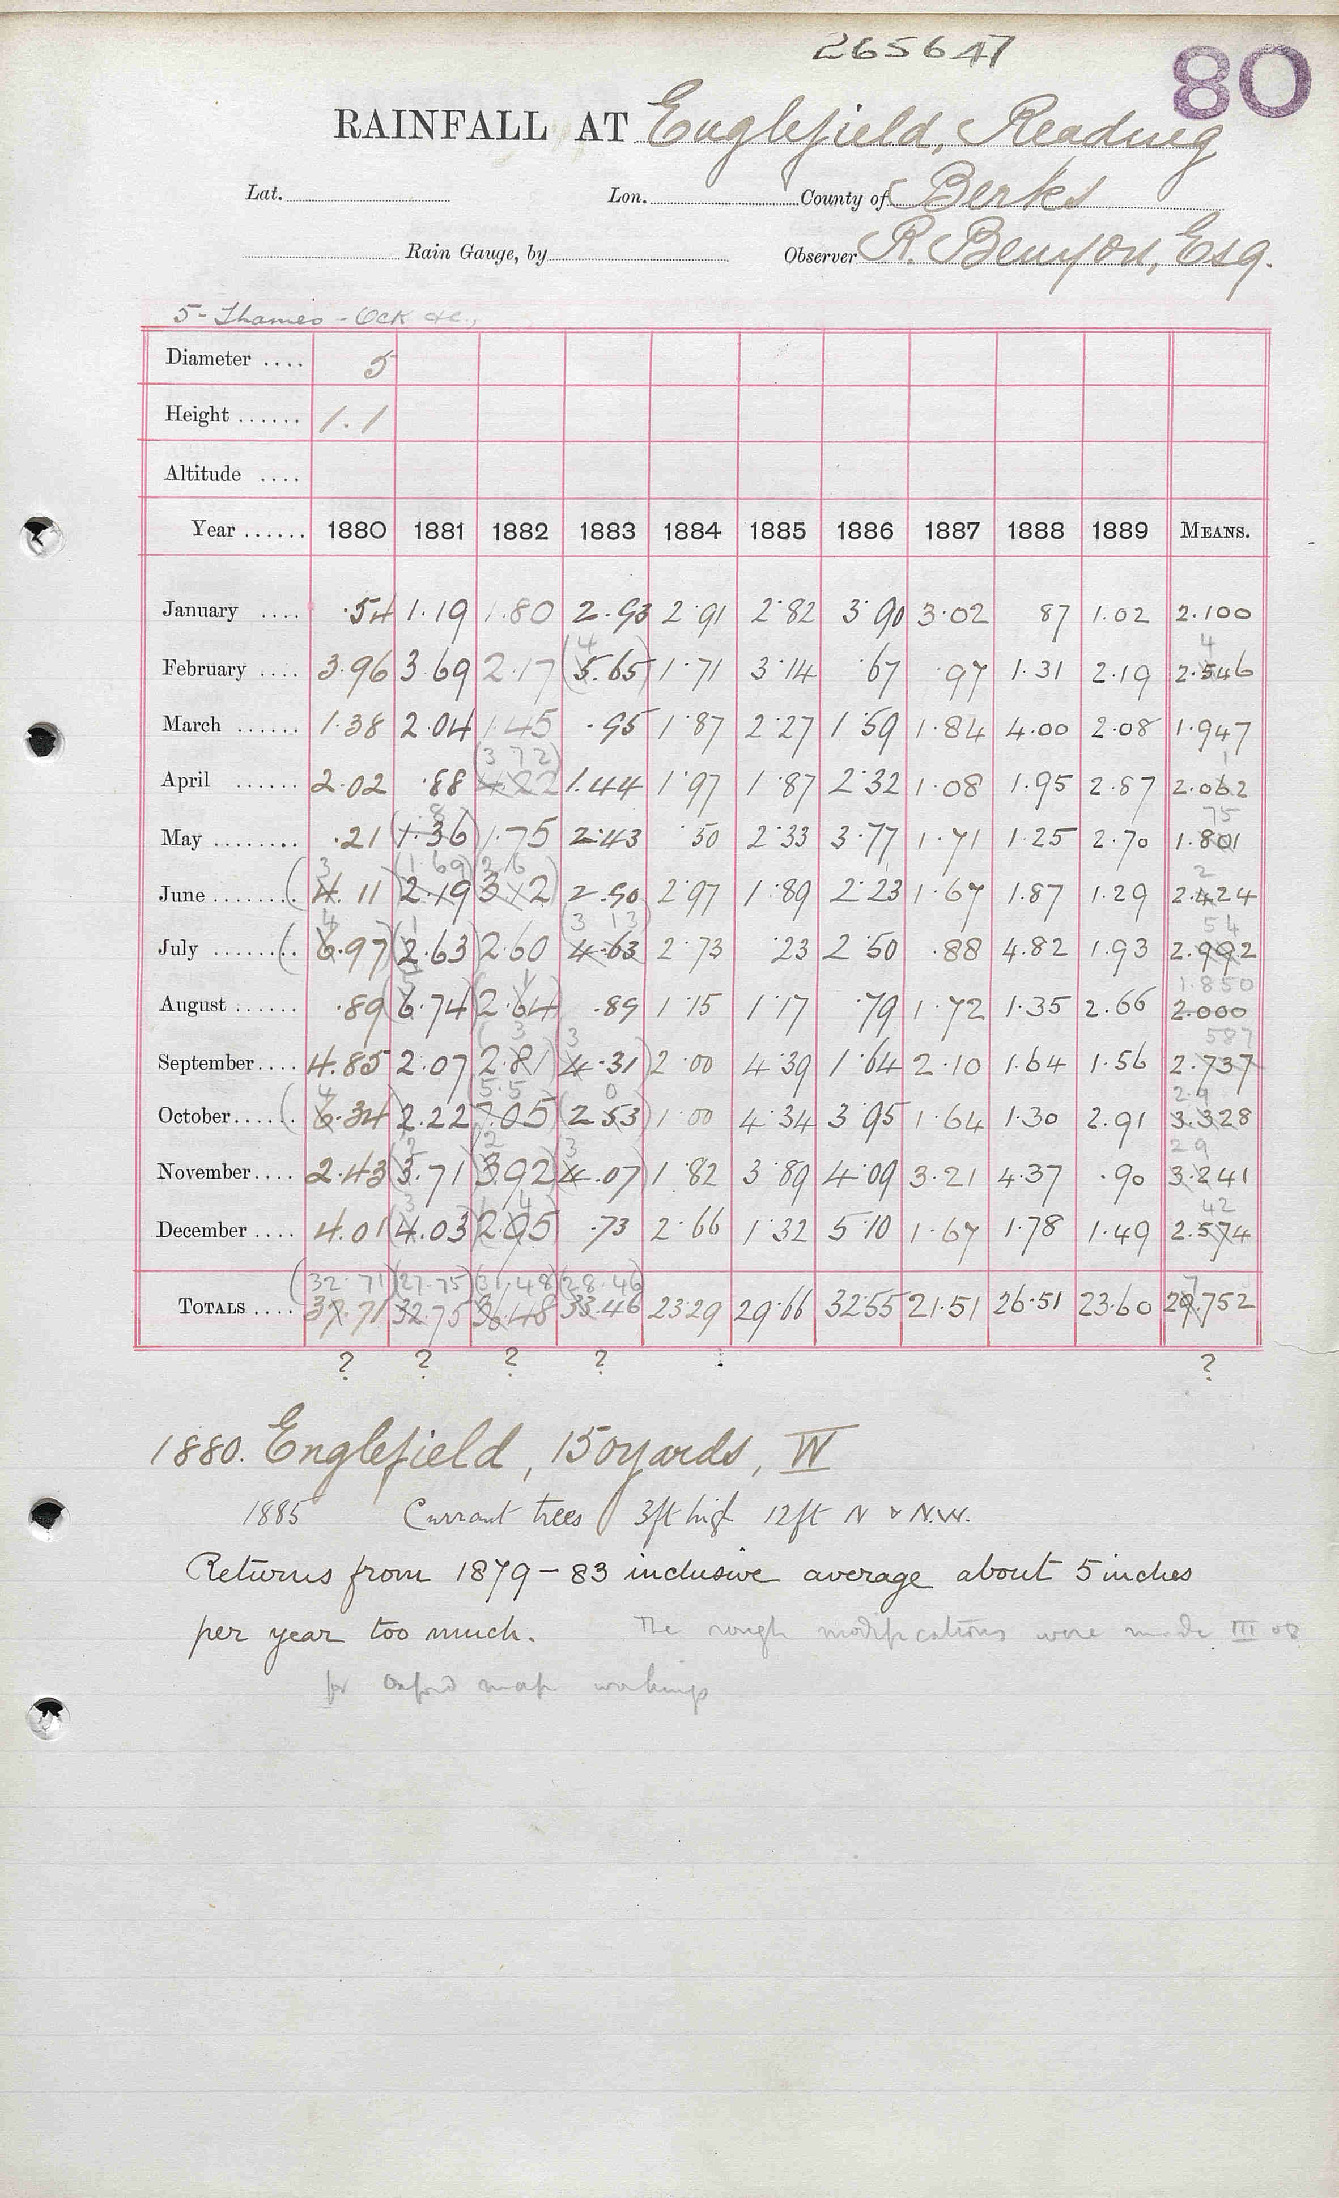 265647
80
RAINFALL AT Englefield, Reading
Lat. Lon. County of Berks
Rain Gauge, by Observer R. Benyon, Esq.
5 - Thames - Ock &c.,
Diameter .... 5
Height ...... 1.1
Altitude ....
Year ...... 1880 1881 1882 1883 1884 1885 1886 1887 1888 1889 MEANS.
January .... .54 1.19 1.80 2.93 2.91 2.82 3.90 3.02 87 1.02 2.100
4 4
February .... 3.96 3.69 2.17 (5.65) 1.71 3.14 .67 .97 1.31 2.19 2.546
March ...... 1.38 2.04 1.45 .95 1.87 2.27 1.59 1.84 4.00 2.08 1.947
(3 72) 1
April ...... 2.02 .88 4.22 1.44 1.97 1.87 2.32 1.08 1.95 2.87 2.062
8 75
May ........ .21 (1.36) 1.75 2.43 .50 2.33 3.77 1.71 1.25 2.70 1.801
3 (1.69) 2 6 2
June ........ (4.11 2.19 3.12) 2.90 2.97 1.89 2.23 1.67 1.87 1.29 2.424
4 1 3 13) 54
July ........ (6.97) (2.63) 2.60 4.63 2.73 .23 2.50 .88 4.82 1.93 2.992
5 1 1.850
August ...... .89 (6.74) (2.64) .89 1.15 1.17 .79 1.72 1.35 2.66 2.000
( 3 3 587
September .... 4.85 2.07 2.81) 4.31) 2.00 4.39 1.64 2.10 1.64 1.56 2.737
4 5.5 0 2.9
October ...... (6.34 2.22 7.05 (2.53) 1.00 4.34 3.95 1.64 1.30 2.91 3.328
2 2 3 29
November .... 2.43 (3.71) (3.92) 4.07) 1.82 3.89 4.09 3.21 4.37 .90 3.241
3 1 4 42
December .... 4.01 (4.03) 2.95 .73 2.66 1.32 5.10 1.67 1.78 1.49 2.574
(32.71) (27.75) (31.48) (28.46) 7
TOTALS .... 37.71 32.75 36.48 33.46 23.29 29.66 32.55 21.51 26.51 23.60 29.752
? ? ? ? ?
1880. Englefield, 150 yards, W
1885 Currant trees 3ft high 12ft N & N.W.
Returns from 1879 - 83 inclusive average about 5 inches
per year too much. The rough modifications were made III 08
for Oxford map workings